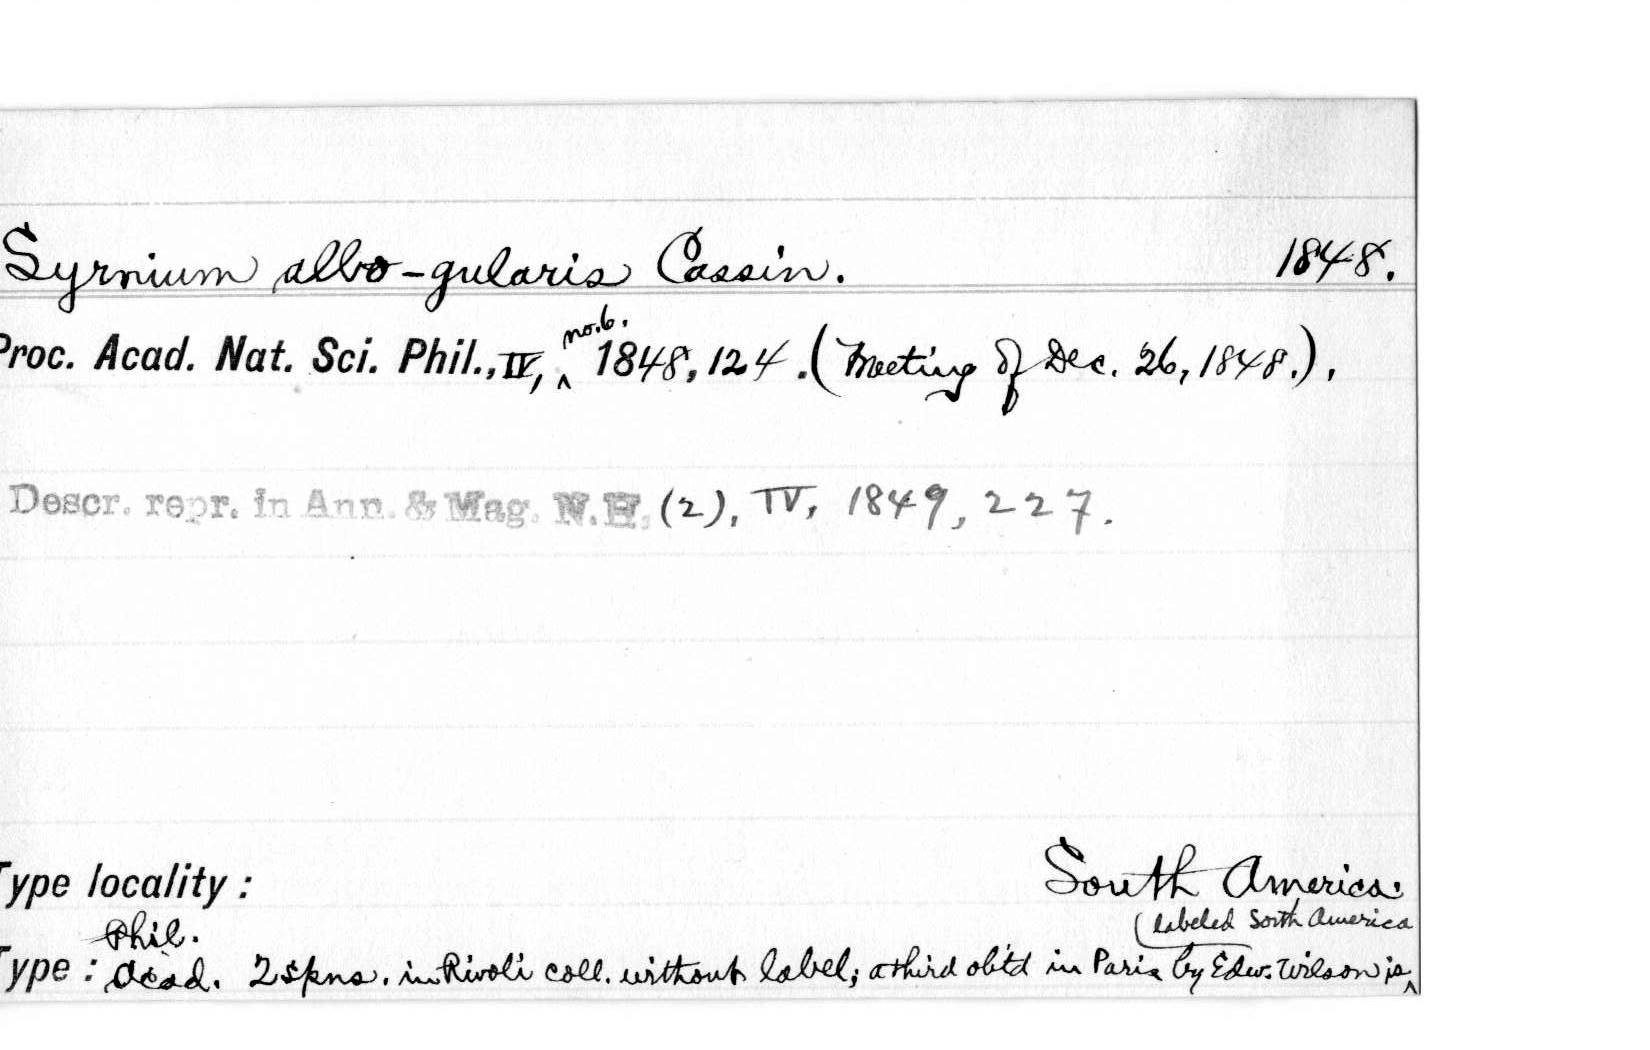 Syrnium albo-gularis Cassin. 1848.
Proc. Acad. Nat. Sci. Phil., IV, no. 6. 1848, 124. (Meeting of Dec. 26, 1848.).
Descr. repr. in Ann. & Mag. N.H. (2), IV, 1849, 227.
Type locality: South America.
Phil. (labeled South America
Type: Acad. 2 spns. in Rivoli coll. without label; a third obt'd in Paris by Edw. Wilson is ^